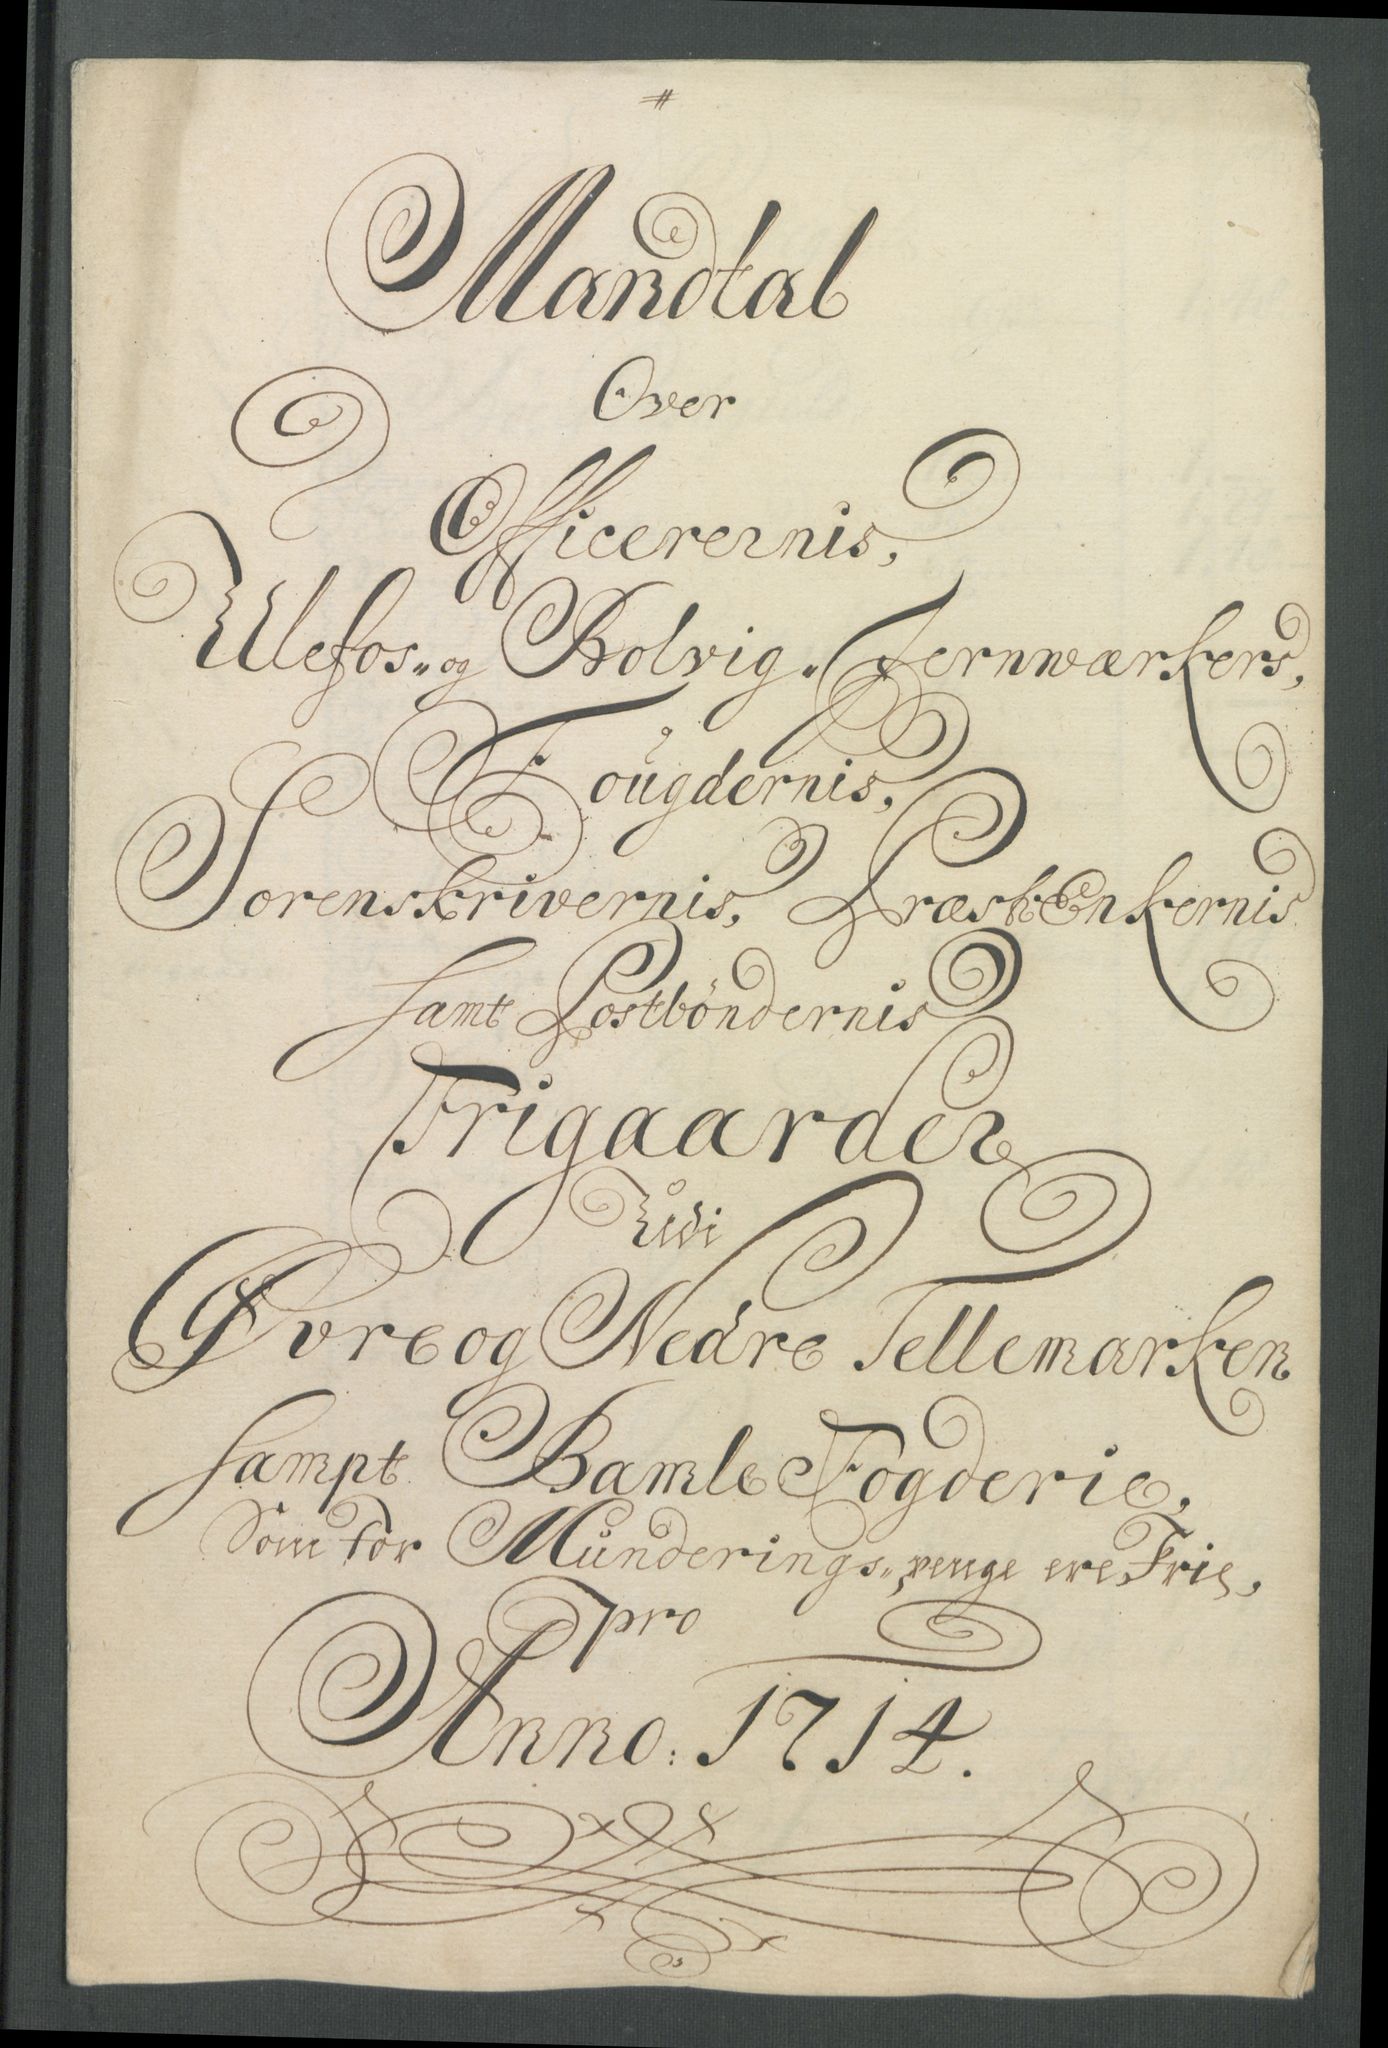 #
Mandtal
Over
Officerernis,
Ulefos„ og Bolvig„ Jernwærkers,
Fougdernis,
Sorenskrivernis, PræstEnkernis
samt Postböndernis
Frigaarder
Udi
Øvre og Nedre Tellemarken
sampt Bamle Fogderie,
Som for Munderings„ penge ere Frie,
pro
Anno: 1714.